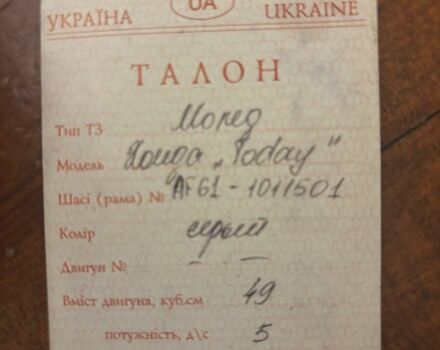 UA
УКРАЇНА UKRAINE
ТАЛОН
Тип ТЗ Мопед
Модель Хонда „Today"
Шасі (рама) № AF61-1011501
Колір серый
Двигун № — —
Вміст двигуна, куб.см 49
потужність, д\с 5